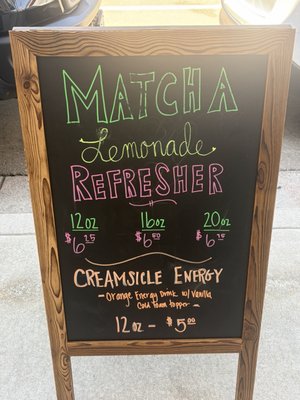 MATCHA
Lemonade
REFRESHER
12oz 16oz 20oz
$6.25 $6.50 $6.75
CREAMSICLE ENERGY
- Orange Energy Drink w/ Vanilla
Cold Foam topper -
12oz - $5.00